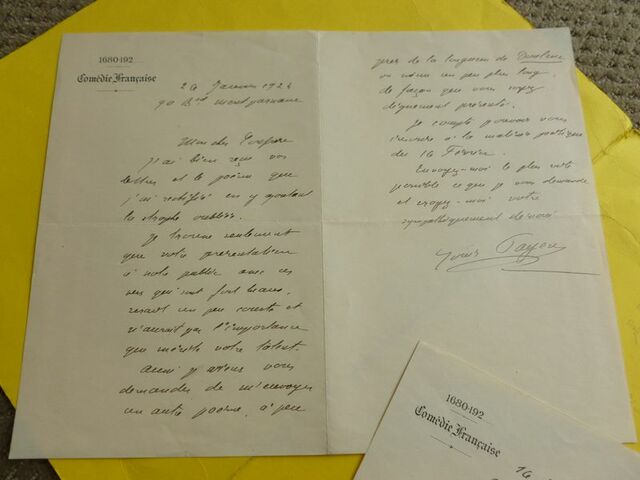 1680-1921
Comédie Française
26 Janvier 1924
90 Bd Montparnasse
Mon cher
j'ai bien reçu vos
lettres et le poème que
j'ai rectifié en y ajoutant
la strophe oubliée.
Je trouve seulement
que votre présentation
à notre public avec ces
vers qui sont fort beaux,
serait un peu courte et
n'aurait pas l'importance
que mérite votre talent.
Aussi je viens vous
demander de m'envoyer
un autre poème, à peu
près de la longueur de
ou même un peu plus long
de façon que vous soyez
dignement présenté.
Je compte pouvoir vous
inscrire à la matinée poétique
du 16 Février.
Envoyez-moi le plus vite
possible ce que je vous demande
et croyez-moi votre
sympathiquement dévoué
1680-1921
Comédie Française